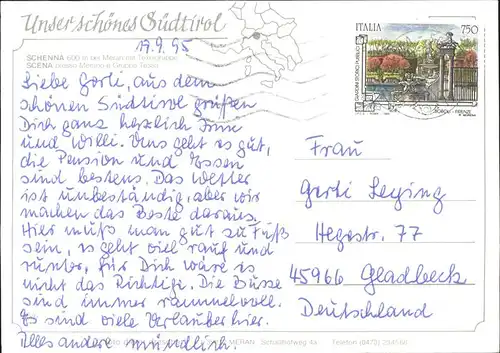 Unser schönes Südtirol
17.9.95
SCHENNA 600 m bei Meran mit Texelgruppe
SCENA presso Merano e Gruppo Tessa
Liebe Gerti, aus dem
schönen Südtirol grüßen
Dich ganz herzlich Irme
und Willi. Uns geht es gut,
die Pension und Essen
sind bestens. Das Wetter
ist unbeständig, aber wir
machen das Beste daraus.
Hier muß man gut zu Fuß
sein, es geht viel rauf und
runter, für Dich wäre es
nicht das Richtige. Die Busse
sind immer rammelvoll.
Es sind viele Urlauber hier.
Alles andere mündlich.
MERAN Schafferhof 4a Telefon (0473)
ITALIA 750
GIARDINI STORICI PUBBLICI
BOBOLI - FIRENZE
Frau
Gerti Leying
Hegestr. 77
45966 Gladbeck
Deutschland